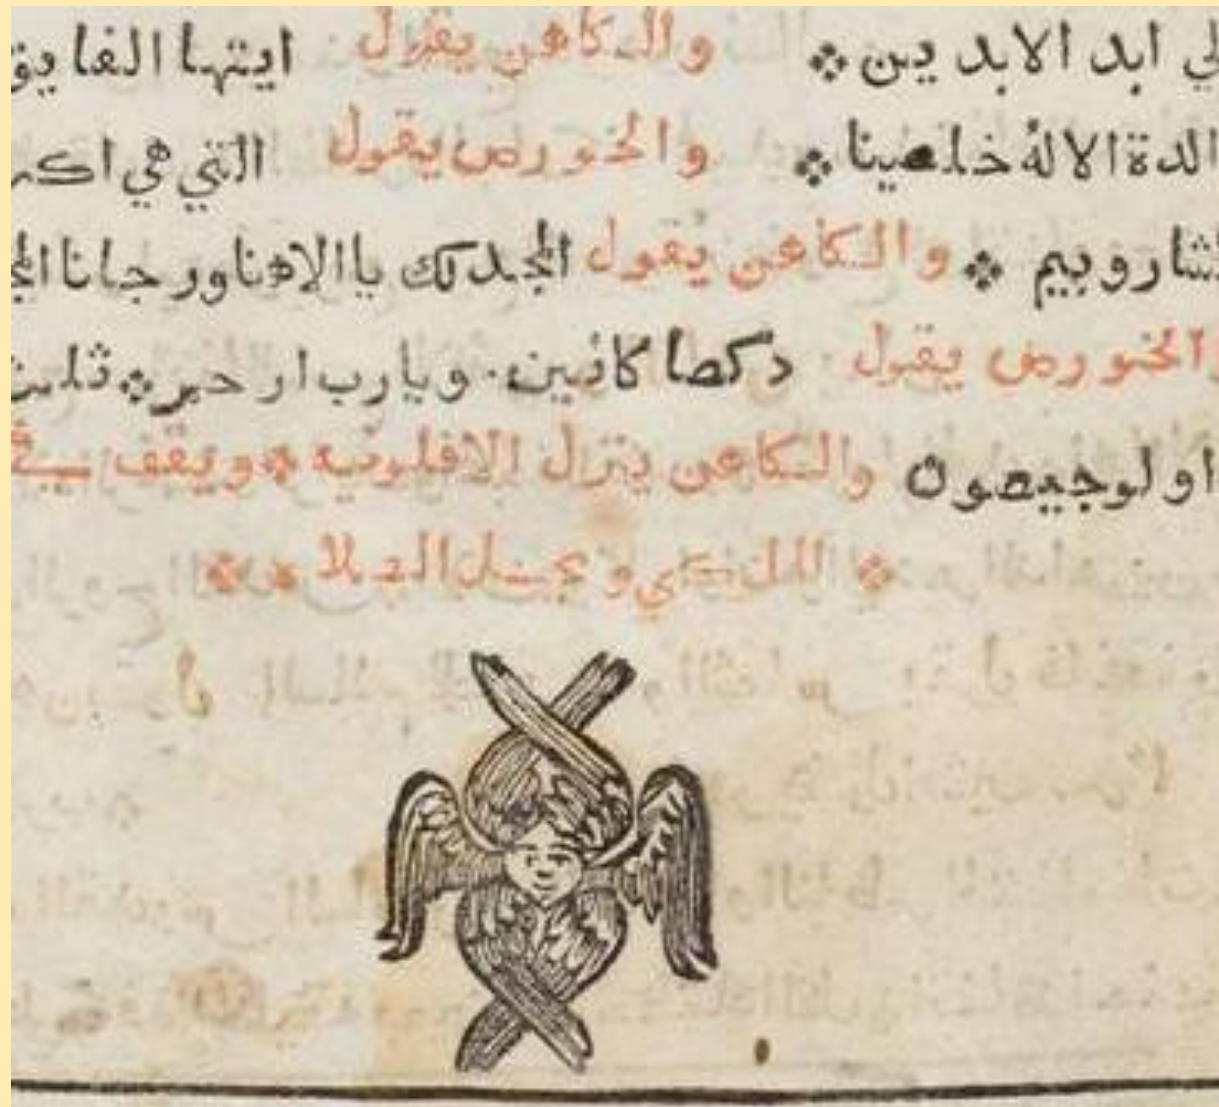 لي ابد الابدين ❖ والكاهن يقول ايتها الفايق
الدة الاله خلصينا ❖ والخورص يقول التي هي اكر
لشاروبيم ❖ والكاهن يقول المجد لك يا الاهنا ورجانا المج
والخورص يقول ذكصا كانين. ويارب ارحم ❖ ثلث
اولوجيصون والكاهن ينزل الافلونية ❖ ويقف في
❖ الملوكي ويجعل الحلا ❖ ❖